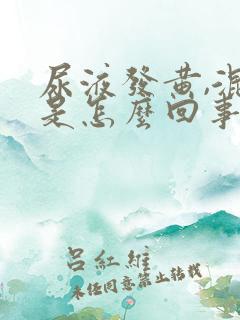 尿液發黃,混
是怎麼回事
呂紅維
未经同意禁止转载